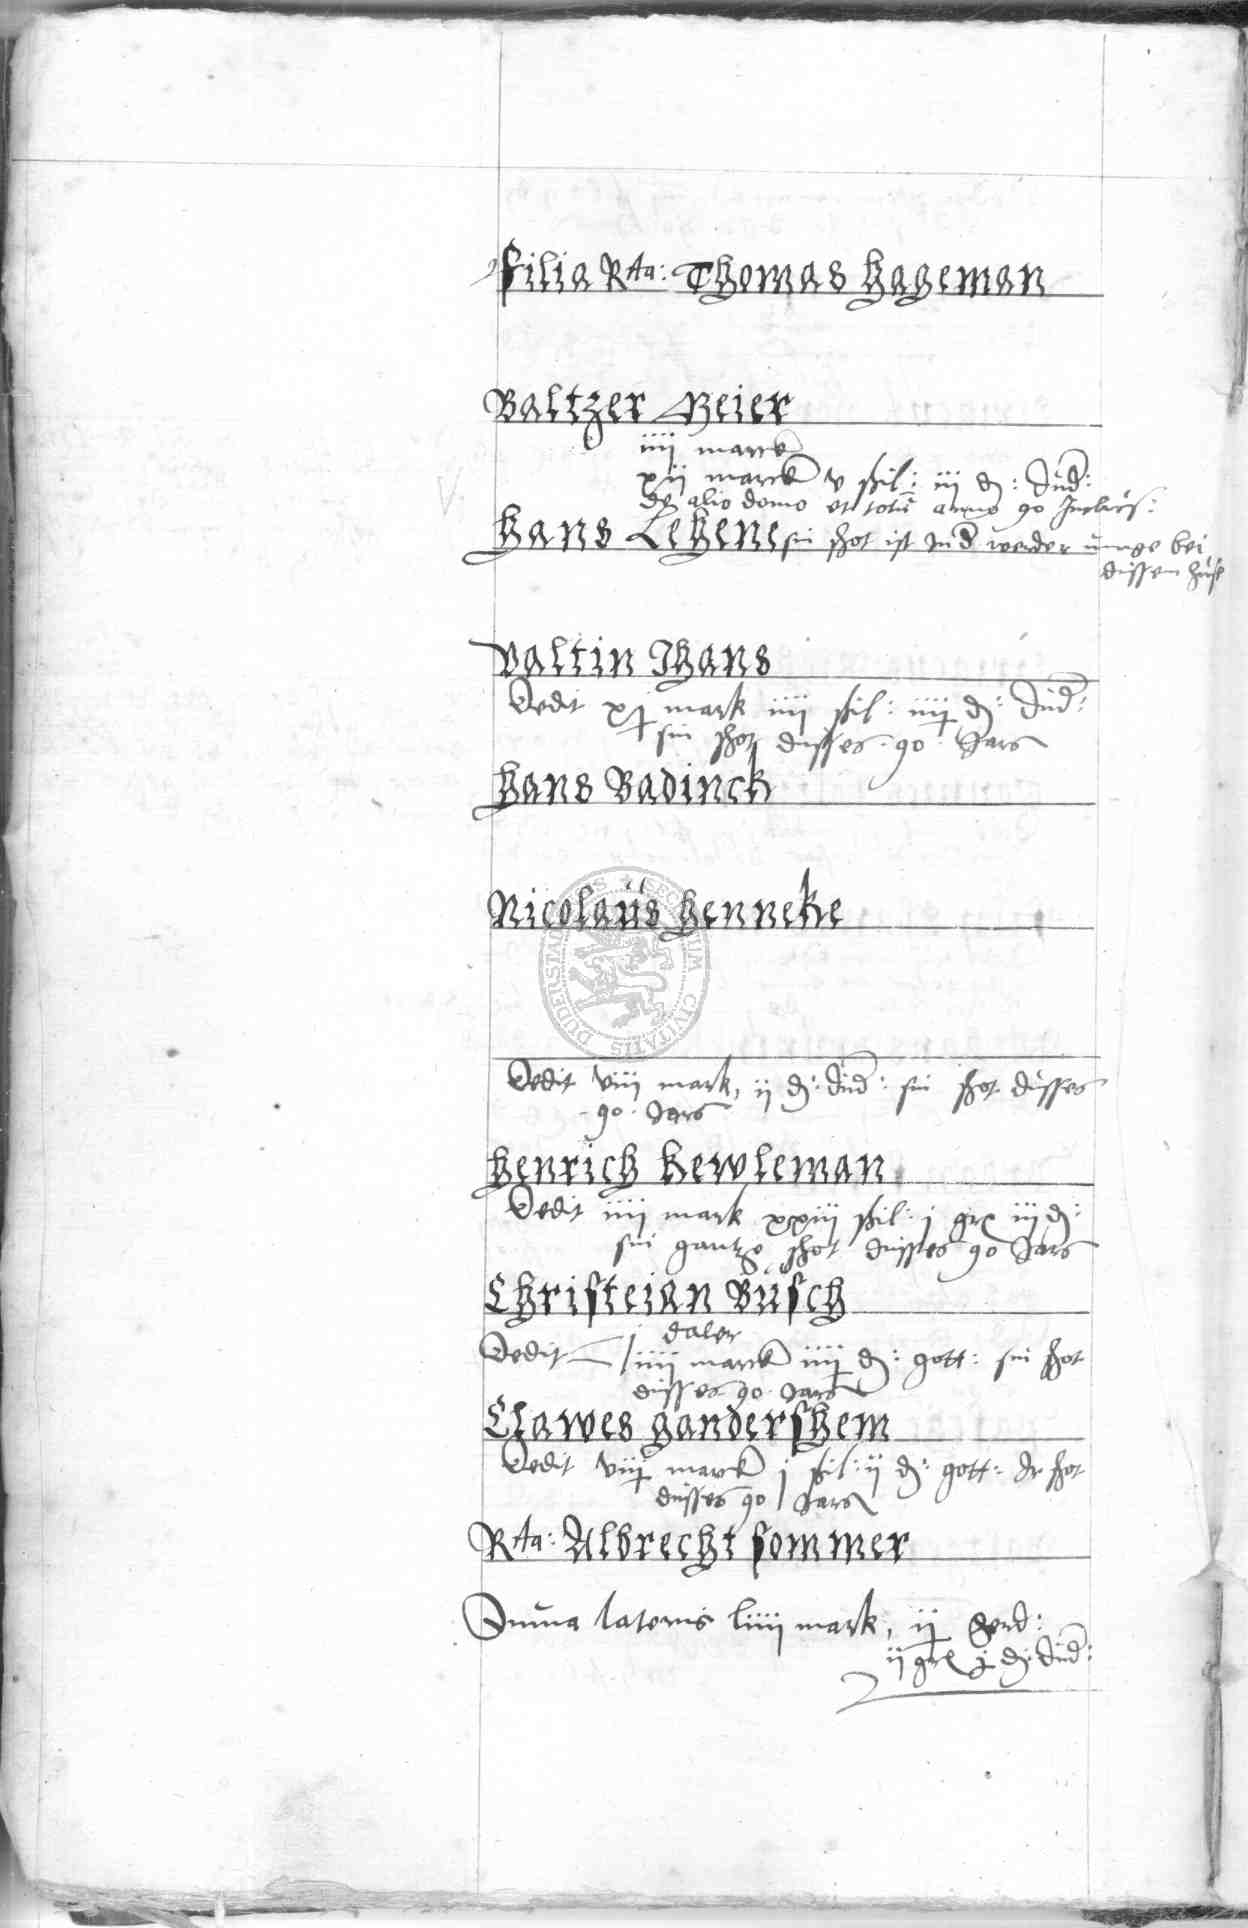 filia Rta: Thomas Hageman
Baltzer Meier
iiij marck
xij marck v shil: iij d: Dud:
de alio domo et totū anno 90 Inclus:
Hans Lehene sin shot ist und werder bei
dissem huse
Valtin Ihans
Dedit xj mark iiij shil: iiij d: Dud:
sin shot disses 90 Jars
Hans Badinck
Nicolaus Henneke
SECRETUM CIVITATIS DUDERSTADENSIS
Dedit viij mark, ij d: dud: sin shot disses
90 Jars
Henrich Kewleman
Dedit iiij mark xxiij shil: j grx iij d:
sin gantze shot disses 90 Jars
Christeian Büsch
j daler
Dedit iiij marck iiij d: gott: sin shot
disses 90 Jars
Clawes Gandershem
Dedit viij marck j shil: ij d: gott: Ir shot
disses 90 Jars
Rta: Albrecht Sommer
Suma lateris liiij mark, ij ferd:
ij grx j d: Dud: